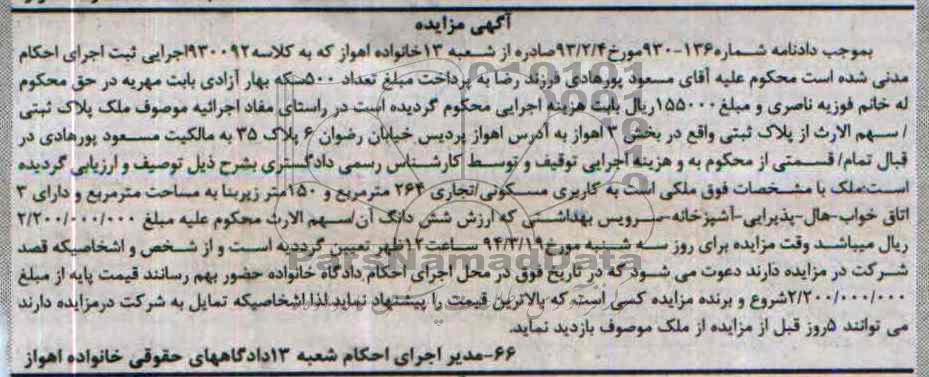 آگهی مزایده
بموجب دادنامه شماره۱۳۶-۹۳۰مورخ۹۳/۲/۴صادره از شعبه ۱۳خانواده اهواز که به کلاسه۹۳۰۰۹۲اجرایی ثبت اجرای احکام
مدنی شده است محکوم علیه آقای مسعود پورهادی فرزند رضا به پرداخت مبلغ تعداد ۵۰۰سکه بهار آزادی بابت مهریه در حق محکوم
له خانم فوزیه ناصری و مبلغ۱۵۵۰۰۰ریال بابت هزینه اجرایی محکوم گردیده است در راستای مفاد اجرائیه موصوف ملک پلاک ثبتی
/ سهم الارث از پلاک ثبتی واقع در بخش ۳ اهواز به آدرس اهواز پردیس خیابان رضوان ۶ پلاک ۳۵ به مالکیت مسعود پورهادی در
قبال تمام/ قسمتی از محکوم به و هزینه اجرایی توقیف و توسط کارشناس رسمی دادگستری بشرح ذیل توصیف و ارزیابی گردیده
است:ملک با مشخصات فوق ملکی است به کاربری مسکونی/تجاری ۲۶۴ مترمربع و ۱۵۰متر زیربنا به مساحت مترمربع و دارای ۳
اتاق خواب-هال-پذیرایی-آشپزخانه-سرویس بهداشتی که ارزش شش دانگ آن/سهم الارث محکوم علیه مبلغ ۲/۲۰۰/۰۰۰/۰۰۰
ریال میباشد وقت مزایده برای روز سه شنبه مورخ۹۴/۳/۱۹ ساعت۱۲ظهر تعیین گردیده است و از شخص و اشخاصیکه قصد
شرکت در مزایده دارند دعوت می شود که در تاریخ فوق در محل اجرای احکام دادگاه خانواده حضور بهم رسانند قیمت پایه از مبلغ
۲/۲۰۰/۰۰۰/۰۰۰شروع و برنده مزایده کسی است که بالاترین قیمت را پیشنهاد نماید لذا اشخاصیکه تمایل به شرکت درمزایده دارند
می توانند ۵روز قبل از مزایده از ملک موصوف بازدید نماید.
۶۶-مدیر اجرای احکام شعبه ۱۳دادگاههای حقوقی خانواده اهواز
ParsNamadData